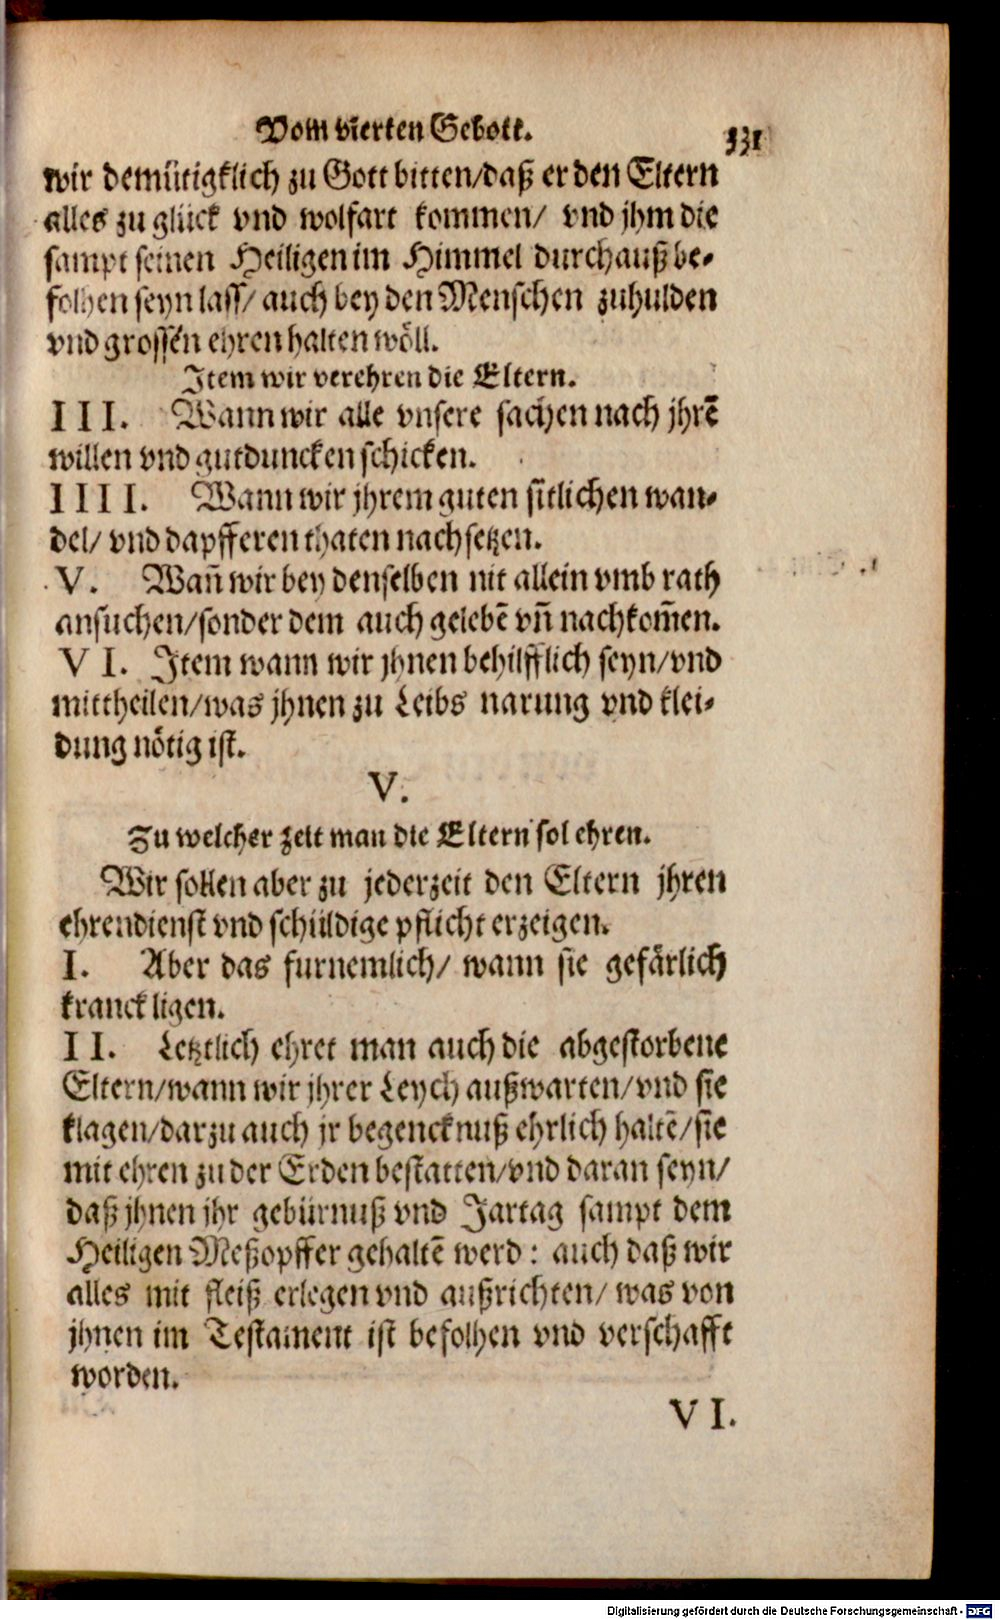 Vom vierten Gebott. 331
wir demütigklich zu Gott bitten/daß er den Eltern
alles zu glück vnd wolfart kommen/ vnd jhm die
sampt seinen Heiligen im Himmel durchauß be-
folhen seyn lass/ auch bey den Menschen zuhulden
vnd grossen ehren halten wöll.
Item wir verehren die Eltern.
III. Wann wir alle vnsere sachen nach jhrē
willen vnd gutduncken schicken.
IIII. Wann wir jhrem guten sitlichen wan-
del/ vnd dapfferen thaten nachsetzen.
V. Wañ wir bey denselben nit allein vmb rath
ansuchen/sonder dem auch gelebē vñ nachkom̃en.
VI. Item wann wir jhnen behilfflich seyn/vnd
mittheilen/was jhnen zu Leibs narung vnd klei-
dung nötig ist.
V.
Zu welcher zeit man die Eltern sol ehren.
Wir sollen aber zu jederzeit den Eltern jhren
ehrendienst vnd schüldige pflicht erzeigen.
I. Aber das furnemlich/ wann sie gefärlich
kranck ligen.
II. Letztlich ehret man auch die abgestorbene
Eltern/wann wir jhrer Leych außwarten/vnd sie
klagen/darzu auch jr begencknuß ehrlich haltē/sie
mit ehren zu der Erden bestatten/vnd daran seyn/
daß jhnen jhr gebürnuß vnd Jartag sampt dem
Heiligen Meßopffer gehaltē werd: auch daß wir
alles mit fleiß erlegen vnd außrichten/ was von
jhnen im Testament ist befolhen vnd verschafft
worden.
VI.
Digitalisierung gefördert durch die Deutsche Forschungsgemeinschaft - DFG